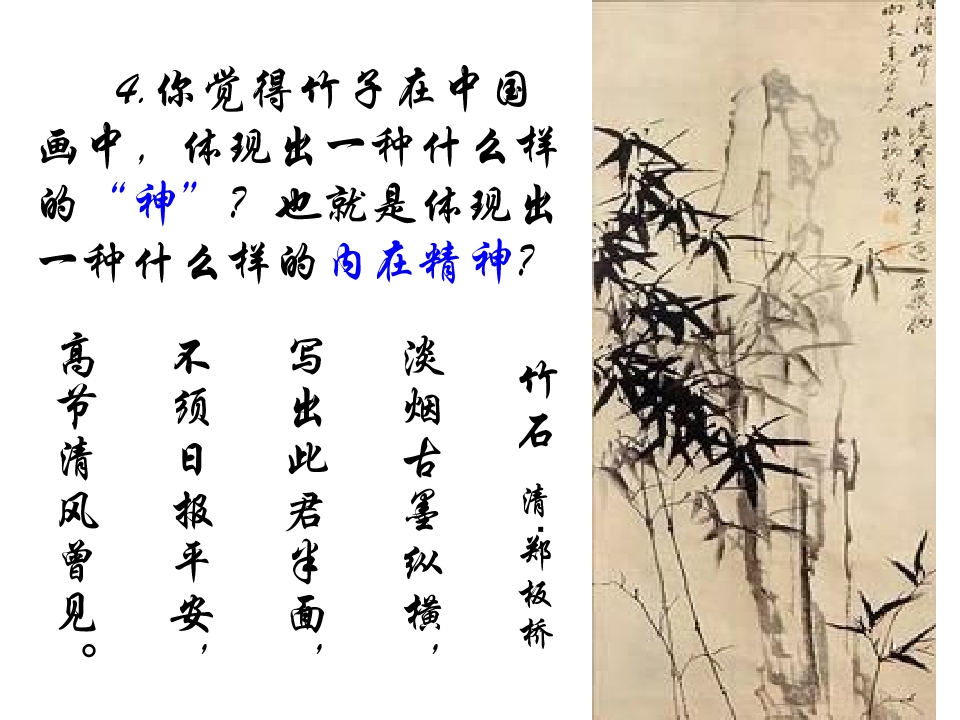 4.你觉得竹子在中国
画中，体现出一种什么样
的“神”？也就是体现出
一种什么样的内在精神？
竹石 清·郑板桥
淡烟古墨纵横，
写出此君半面，
不须日报平安，
高节清风曾见。